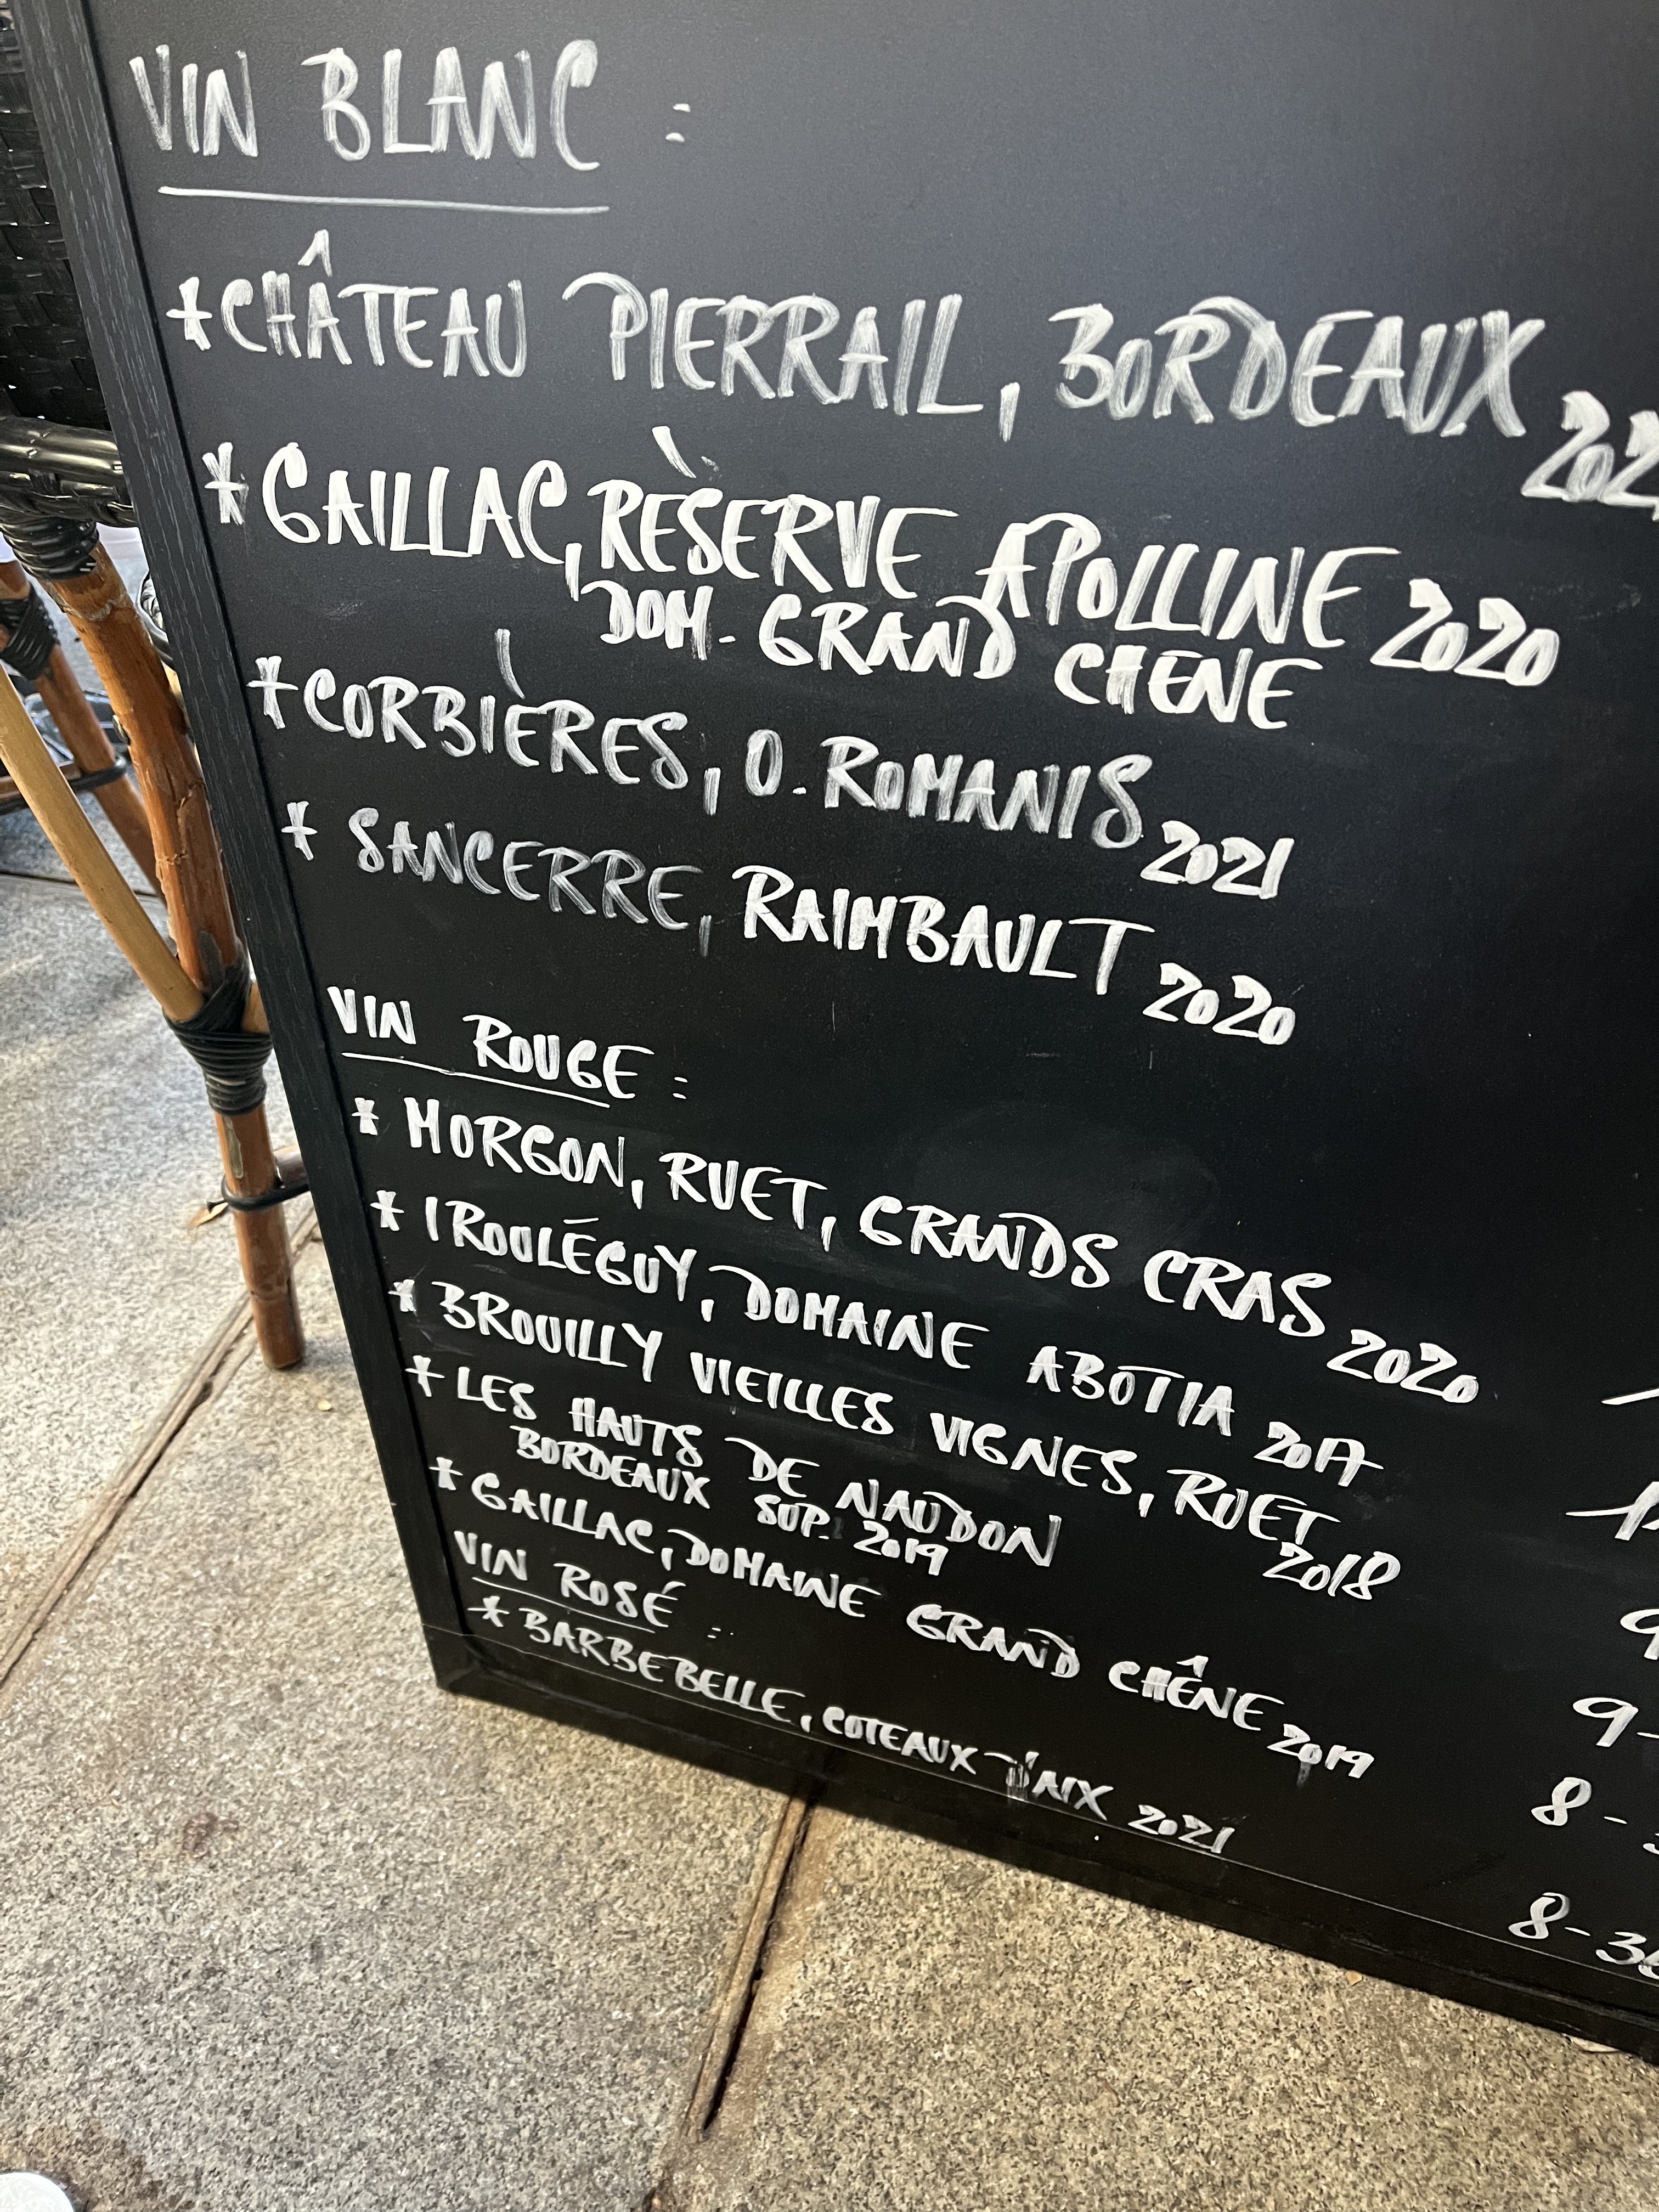 VIN BLANC :
*CHÂTEAU PIERRAIL, BORDEAUX
*GAILLAC, RÈSERVE APOLLINE 2020
DOM. GRAND CHENE
*CORBIÈRES, O. ROMANIS 2021
* SANCERRE, RAIMBAULT 2020
VIN ROUGE :
* MORGON, RUET, GRANDS CRAS 2020
* IROULÉGUY, DOMAINE ABOTIA 2017
* BROUILLY VIEILLES VIGNES, RUET 2018
* LES HAUTS DE NAUDON
BORDEAUX SUP. 2019
* GAILLAC, DOMAINE GRAND CHÊNE 2019
9-
VIN ROSÉ :
8-
* BARBEBELLE, COTEAUX D'AIX 2021
8-